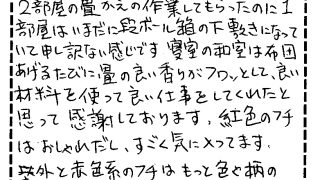 2部屋の畳かえの作業してもらったのに1
部屋はいまだに段ボール箱の下敷きになって
いて申し訳ない感じです 寝室の和室は布団
あげるたびに畳の良い香りがフワッとして、良い
材料を使って良い仕事をしてくれたと
思って感謝しております。紅色のフチ
はおしゃれだし、すごく気に入ってます。
案外と赤色系のフチはもっと色や柄の